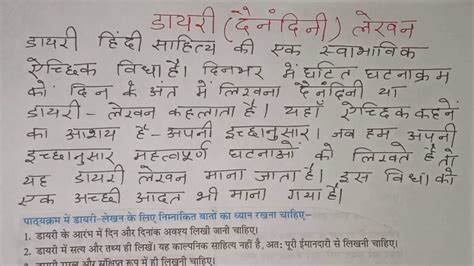 डायरी (दैनंदिनी) लेखन
डायरी हिंदी साहित्य की एक स्वाभाविक
ऐच्छिक विधा है। दिनभर में घटित घटनाक्रम
को दिन के अंत में लिखना दैनंदिनी या
डायरी-लेखन कहलाता है। यहाँ ऐच्छिक कहने
का आशय है-अपनी इच्छानुसार। जब हम अपनी
इच्छानुसार महत्वपूर्ण घटनाओं को लिखते है तो
यह डायरी लेखन माना जाता है। इस विधा को
एक अच्छी आदत भी माना गया है।
पाठ्यक्रम में डायरी-लेखन के लिए निम्नांकित बातों का ध्यान रखना चाहिए-
1. डायरी के आरंभ में दिन और दिनांक अवश्य लिखी जानी चाहिए।
2. डायरी में सत्य और तथ्य ही लिखें। यह काल्पनिक साहित्य नहीं है, अतः पूरी ईमानदारी से लिखनी चाहिए।
3. डायरी सरल और संक्षिप्त रूप में ही लिखनी चाहिए।